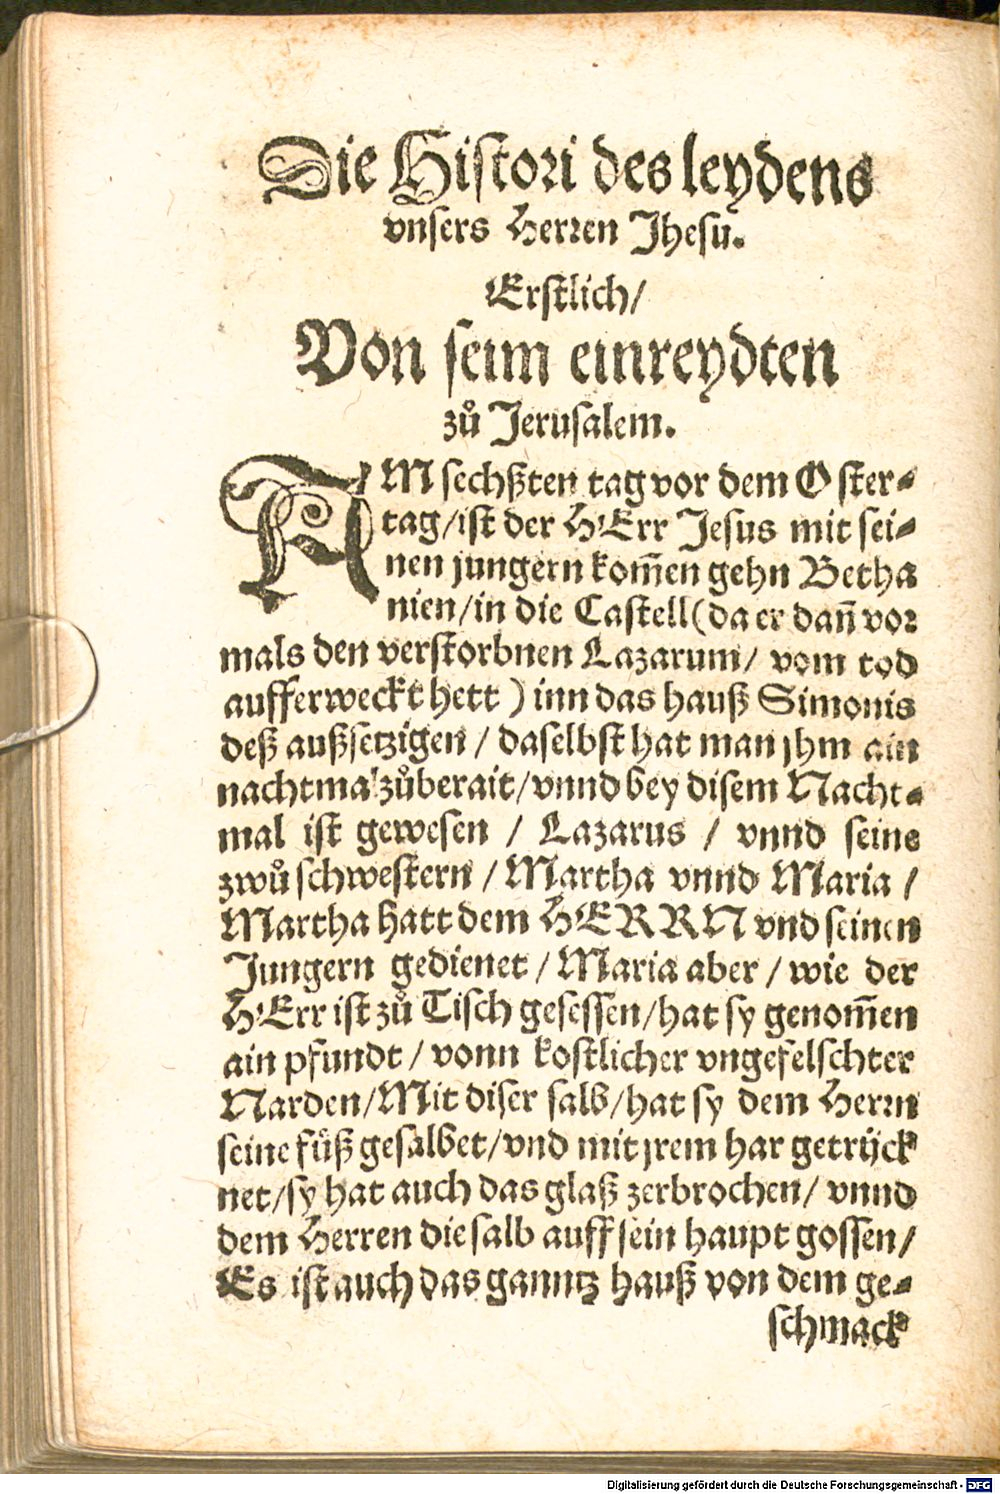 Die Histori des leydens
vnsers Herren Jhesu.
Erstlich/
Von seim einreydten
zů Jerusalem.
AM sechßten tag vor dem Oster-
tag/ist der HErr Jesus mit sei-
nen jungern kom̃en gehn Betha
nien/in die Castell(da er dañ vor
mals den verstorbnen Lazarum/ vom tod
aufferweckt hett ) inn das hauß Simonis
deß außsetzigen / daselbst hat man jhm ain
nachtmal zůberait/vnnd bey disem Nacht-
mal ist gewesen / Lazarus / vnnd seine
zwů schwestern / Martha vnnd Maria /
Martha hatt dem HERRN vnd seinen
Jungern gedienet / Maria aber / wie der
HErr ist zů Tisch gesessen/hat sy genom̃en
ain pfundt / vonn kostlicher vngefelschter
Narden/Mit diser salb/hat sy dem Herrn
seine fůß gesalbet/vnd mit jrem har getrück
net/sy hat auch das glaß zerbrochen/ vnnd
dem Herren die salb auff sein haupt gossen/
Es ist auch das ganntz hauß von dem ge-
schmack
Digitalisierung gefördert durch die Deutsche Forschungsgemeinschaft - DFG